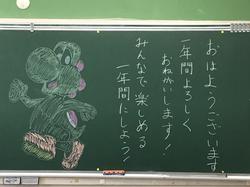 おはようございます
一年間よろしく
おねがいします!
みんなで楽しめる
一年間にしよう!